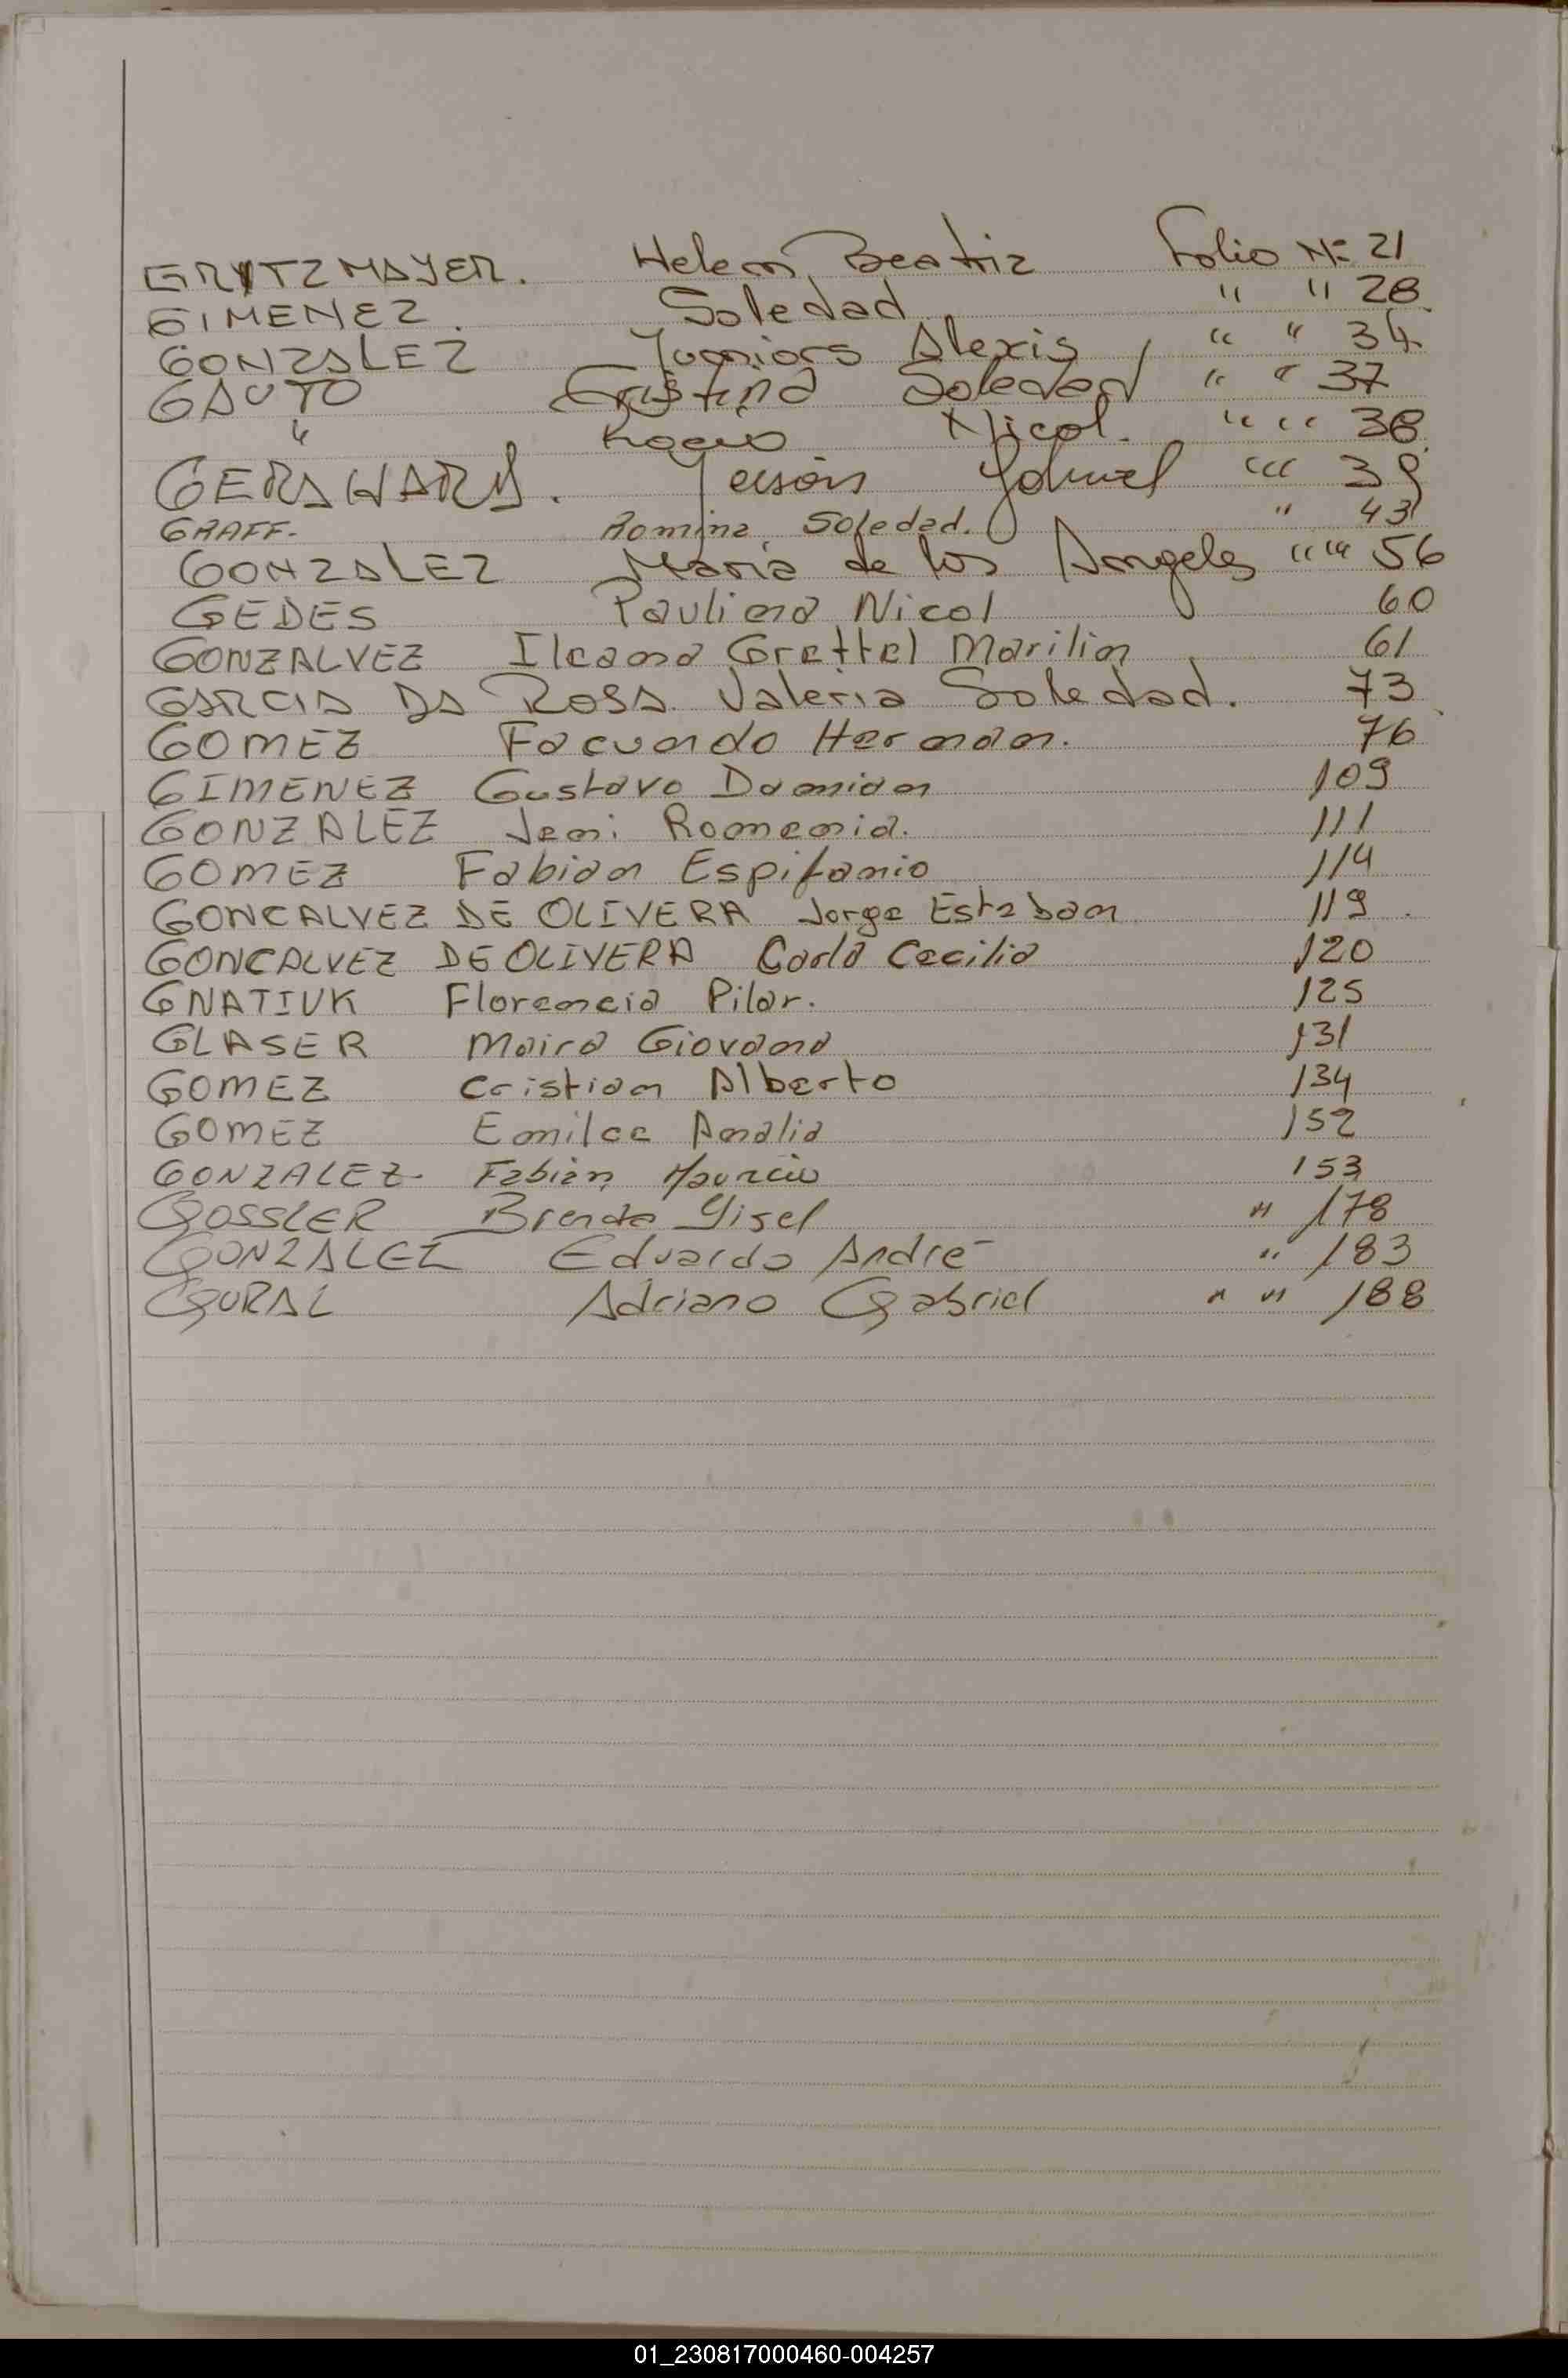 GRUTZMAYER. Helem Beatriz Folio Nº 21
GIMENEZ. Soledad " " 28
GONZALEZ Yuniors Alexis, " " 34
GAUTO Cristina Soledad " " 37
" Rocio Nicol. " " 38
GERSHARD. Yeison Johuel " " 39
GRAFF. Romina Soledad. " 43
GONZALEZ Maria de los Angeles " " 56
GEDES Paulina Nicol 60
GONZALVEZ Ileana Grettel Marilin 61
GARCIA DA ROSA. Valeria Soledad. 73
GOMEZ Facundo Hernan. 76
GIMENEZ Gustavo Damian 109
GONZALEZ Jeni Romenia. 111
GOMEZ Fabian Espifanio 114
GONCALVEZ DE OLIVERA Jorge Esteban 119
GONCALVEZ DE OLIVERA Carla Cecilia 120
GNATIUK Florencia Pilar. 125
GLASER Maira Giovana 131
GOMEZ Cristian Alberto 134
GOMEZ Emilce Analia 152
GONZALEZ- Fabian Mauricio 153
GOSSLER Brenda Gisel " 178
GONZALEZ Eduardo André " 183
GURAL Adriano Gabriel " " 188
01_230817000460-004257